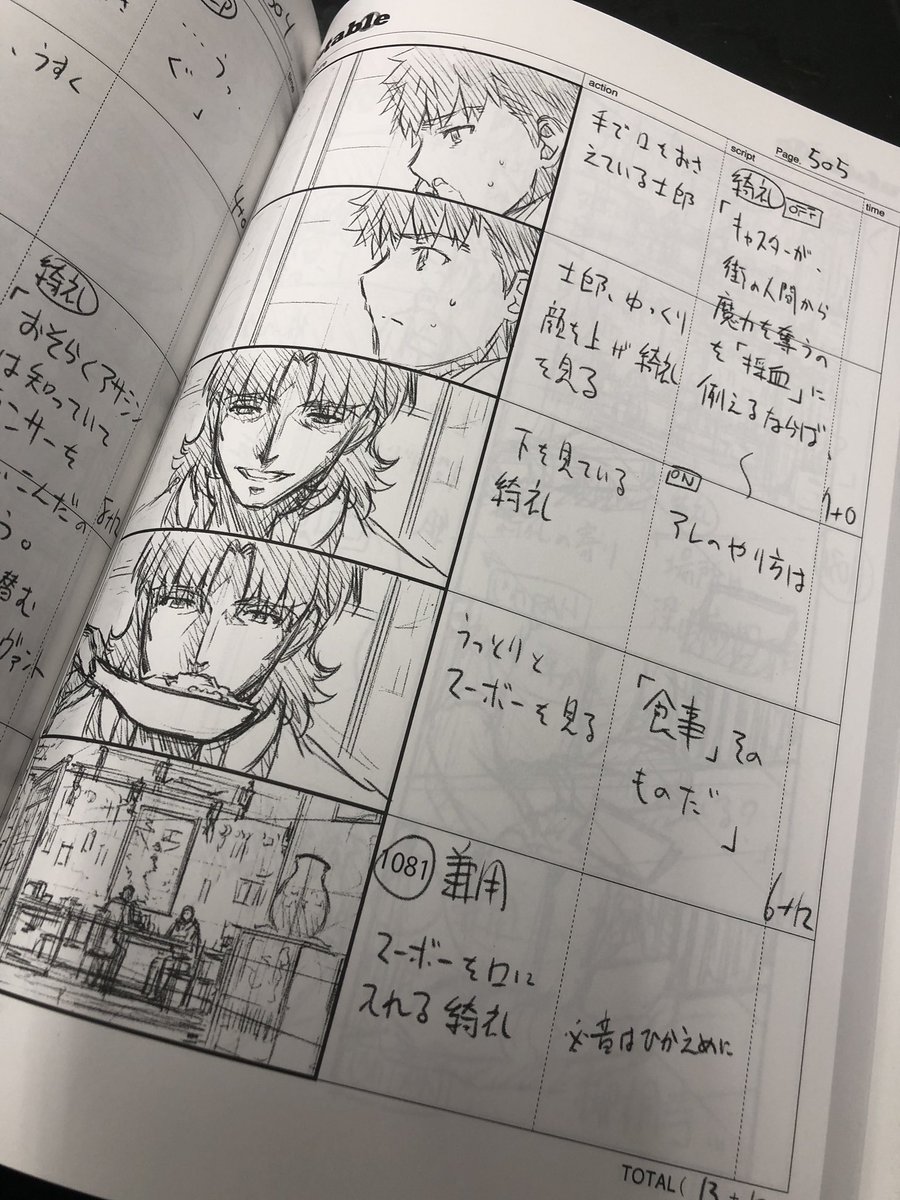 504
う…
ぐ…」
、うすく
4+0
綺礼
「おそらくアサシン
は知っていて
ンサーを
8+12
う。
替む
ヴァント
table
action
script
Page.
505
time
手で口をおさ
えている士郎
綺礼 OFF
「キャスターが、
街の人間から
魔力を奪うの
を「採血」に
例えるならば、
7+0
士郎、ゆっくり
顔を上げ綺礼
を見る
下を見ている
綺礼
ON
アレのやり方は
うっとりと
マーボーを見る
「食事」その
ものだ」
6+12
1081 兼用
マーボーを口に
入れる綺礼
音はひかえめに
TOTAL( 13 +